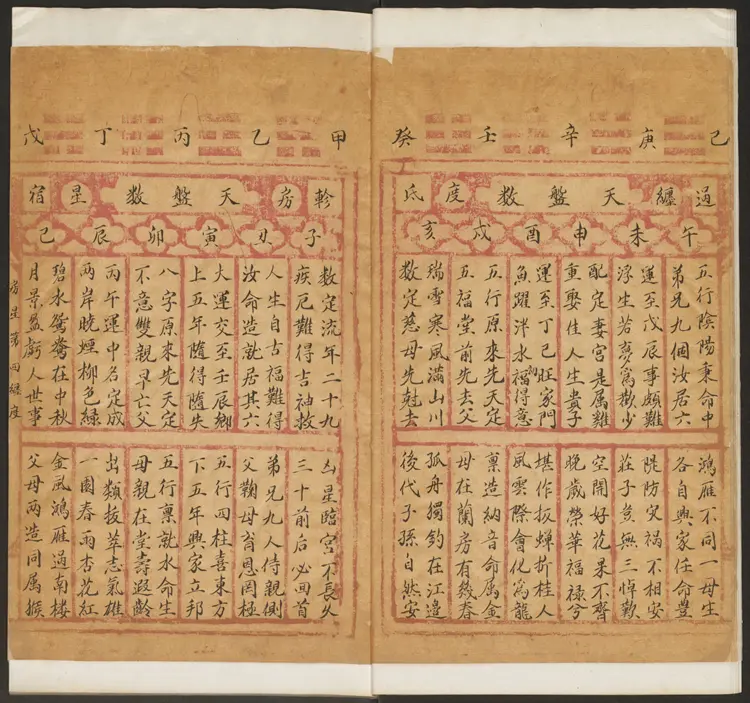 己 庚 辛 壬 癸
過 纏 天盤數 度 氐
午 未 申 酉 戌 亥
五行陰陽秉命中
弟兄九個汝居六
運至戊辰事頗難
浮生若夢為歡少
配定妻宮是属雞
重娶佳人生貴子
運至丁巳旺家門
魚躍泮水福得意
五行原來先天定
五福堂前先去父
瑞雪寒風滿山川
數定慈母先尅去
鴻雁不同一母生
各自興家任命豊
隄防災禍不相安
莊子無三悼歎
空開好花果不齊
晚歲榮華福祿兮
堪作扳蟾折桂人
風雲際會化為龍
稟造納音命属金
母在蘭房有幾春
孤舟獨釣在江邊
後代子孫自然安
甲 乙 丙 丁 戊
軫 房 天盤數 星 宿
子 丑 寅 卯 辰 巳
數定流年二十九
疾厄難得吉神救
人生自古福難得
汝命造就居其六
大運交至壬辰鄉
上五年隨得隨失
八字原來先天定
不意雙親早亡父
丙午運中名定成
兩岸曉煙柳色綠
碧水鴛鴦在中秋
月景盈虧人世事
凶星臨宮不長久
三十前后必回首
弟兄九人侍親側
父鞠母育恩罔極
五行四柱喜東方
下五年興家立邦
五行稟就水命生
母親在堂壽遐齡
出類拔萃志氣雄
一園春雨杏花紅
金風鴻雁過南樓
父母兩造同属猴
房星第四纏度